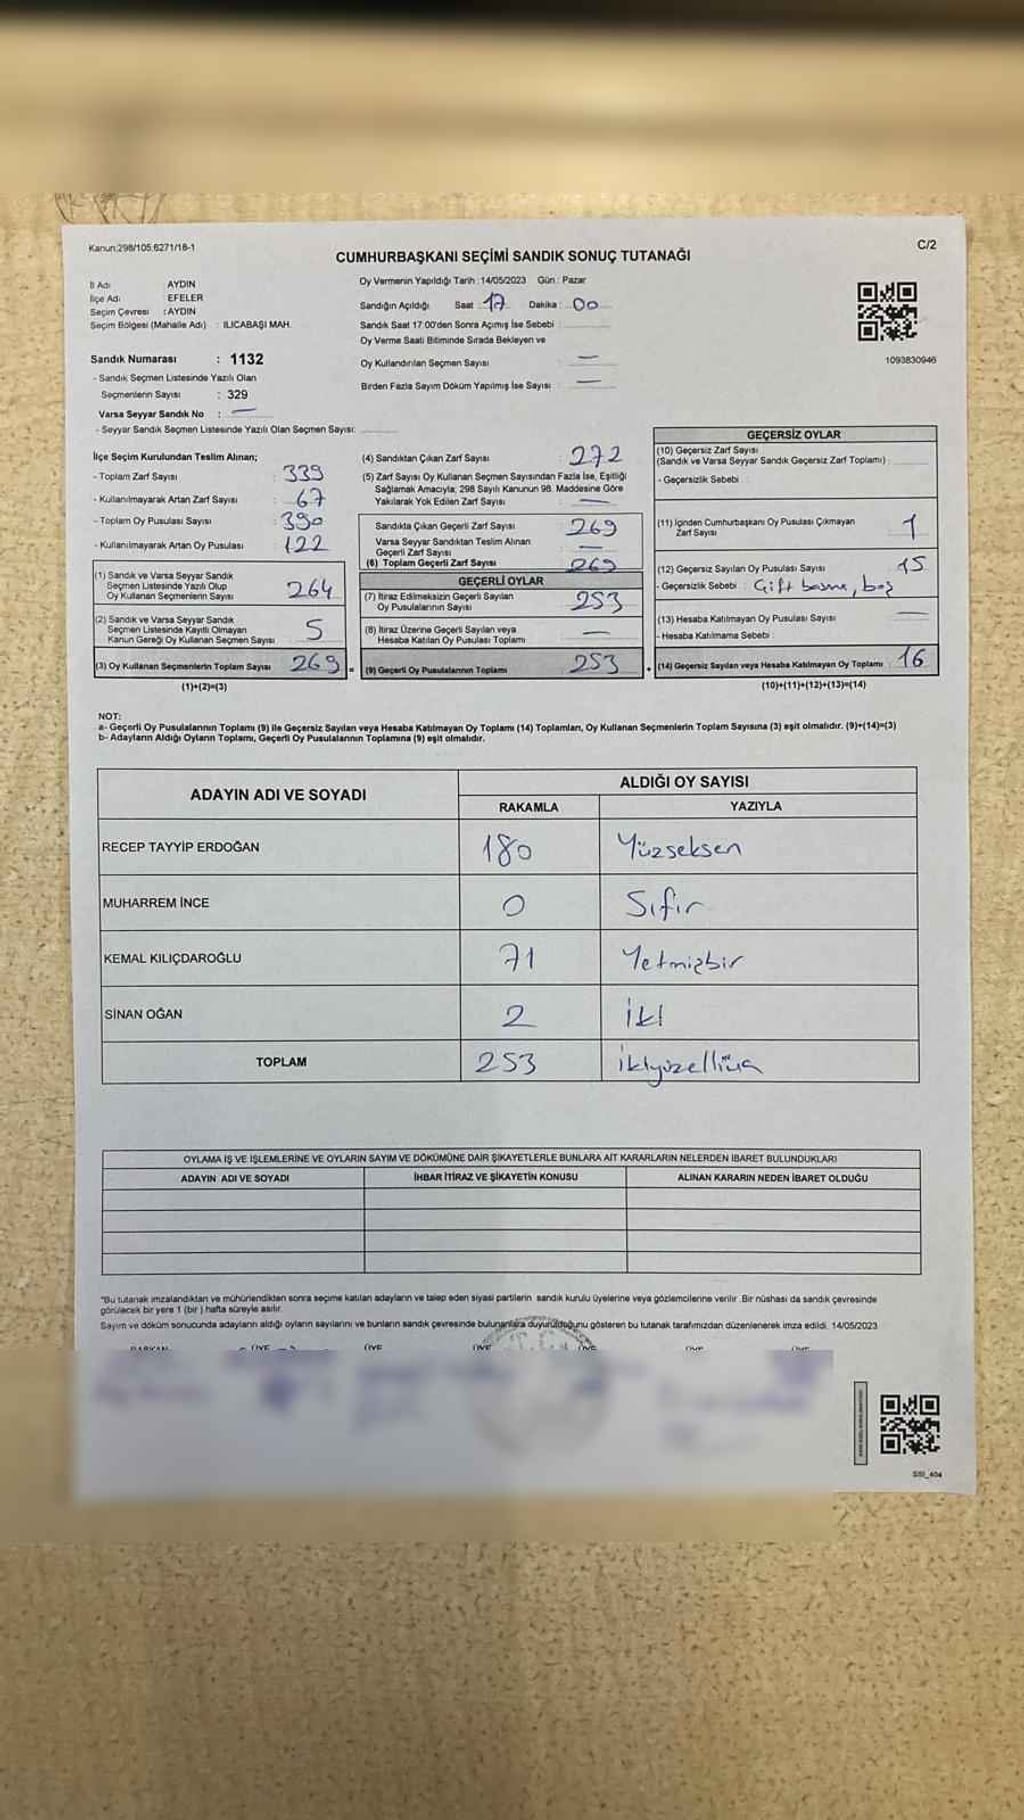 Kanun:298/105:6271/18-1
C/2
CUMHURBAŞKANI SEÇİMİ SANDIK SONUÇ TUTANAĞI
İl Adı AYDIN
İlçe Adı EFELER
Seçim Çevresi : AYDIN
Seçim Bölgesi (Mahalle Adı) : ILICABAŞI MAH.
Sandık Numarası : 1132
- Sandık Seçmen Listesinde Yazılı Olan
Seçmenlerin Sayısı : 329
Varsa Seyyar Sandık No : —
- Seyyar Sandık Seçmen Listesinde Yazılı Olan Seçmen Sayısı:
Oy Vermenin Yapıldığı Tarih : 14/05/2023 Gün : Pazar
Sandığın Açıldığı Saat : 17 Dakika : 00
Sandık Saat 17:00'den Sonra Açımış İse Sebebi :
Oy Verme Saati Bitiminde Sırada Bekleyen ve
Oy Kullandırılan Seçmen Sayısı : —
Birden Fazla Sayım Döküm Yapılmış İse Sayısı : —
1093830946
İlçe Seçim Kurulundan Teslim Alınan;
- Toplam Zarf Sayısı : 339
- Kullanılmayarak Artan Zarf Sayısı : 67
- Toplam Oy Pusulası Sayısı : 390
- Kullanılmayarak Artan Oy Pusulası : 122
(1) Sandık ve Varsa Seyyar Sandık
Seçmen Listesinde Yazılı Olup
Oy Kullanan Seçmenlerin Sayısı 264
(2) Sandık ve Varsa Seyyar Sandık
Seçmen Listesinde Kayıtlı Olmayan
Kanun Gereği Oy Kullanan Seçmen Sayısı 5
(3) Oy Kullanan Seçmenlerin Toplam Sayısı 269 =
(1)+(2)=(3)
(4) Sandıktan Çıkan Zarf Sayısı : 272
(5) Zarf Sayısı Oy Kullanan Seçmen Sayısından Fazla İse, Eşitliği
Sağlamak Amacıyla, 298 Sayılı Kanunun 98. Maddesine Göre
Yakılarak Yok Edilen Zarf Sayısı : —
Sandıkta Çıkan Geçerli Zarf Sayısı 269
Varsa Seyyar Sandıktan Teslim Alınan
Geçerli Zarf Sayısı —
(6) Toplam Geçerli Zarf Sayısı 269
GEÇERLİ OYLAR
(7) İtiraz Edilmeksizin Geçerli Sayılan
Oy Pusulalarının Sayısı 253
(8) İtiraz Üzerine Geçerli Sayılan veya
Hesaba Katılan Oy Pusulası Toplamı —
(9) Geçerli Oy Pusulalarının Toplamı 253 +
GEÇERSİZ OYLAR
(10) Geçersiz Zarf Sayısı
(Sandık ve Varsa Seyyar Sandık Geçersiz Zarf Toplamı) :
- Geçersizlik Sebebi :
(11) İçinden Cumhurbaşkanı Oy Pusulası Çıkmayan
Zarf Sayısı 1
(12) Geçersiz Sayılan Oy Pusulası Sayısı : 15
- Geçersizlik Sebebi : Çift basma, boş
(13) Hesaba Katılmayan Oy Pusulası Sayısı : —
- Hesaba Katılmama Sebebi :
(14) Geçersiz Sayılan veya Hesaba Katılmayan Oy Toplamı : 16
(10)+(11)+(12)+(13)=(14)
NOT:
a- Geçerli Oy Pusulalarının Toplamı (9) ile Geçersiz Sayılan veya Hesaba Katılmayan Oy Toplamı (14) Toplamları, Oy Kullanan Seçmenlerin Toplam Sayısına (3) eşit olmalıdır. (9)+(14)=(3)
b- Adayların Aldığı Oyların Toplamı, Geçerli Oy Pusulalarının Toplamına (9) eşit olmalıdır.
ADAYIN ADI VE SOYADI
ALDIĞI OY SAYISI
RAKAMLA YAZIYLA
RECEP TAYYİP ERDOĞAN 180 Yüzseksen
MUHARREM İNCE 0 Sıfır
KEMAL KILIÇDAROĞLU 71 Yetmişbir
SİNAN OĞAN 2 İki
TOPLAM 253 İkiyüzelliüç
OYLAMA İŞ VE İŞLEMLERİNE VE OYLARIN SAYIM VE DÖKÜMÜNE DAİR ŞİKAYETLERLE BUNLARA AİT KARARLARIN NELERDEN İBARET BULUNDUKLARI
ADAYIN ADI VE SOYADI İHBAR İTİRAZ VE ŞİKAYETİN KONUSU ALINAN KARARIN NEDEN İBARET OLDUĞU
"Bu tutanak imzalandıktan ve mühürlendikten sonra seçime katılan adayların ve talep eden siyasi partilerin sandık kurulu üyelerine veya gözlemcilerine verilir. Bir nüshası da sandık çevresinde
görülecek bir yere 1 (bir) hafta süreyle asılır.
Sayım ve döküm sonucunda adayların aldığı oyların sayılarını ve bunların sandık çevresinde bulunanlara duyurulduğunu gösteren bu tutanak tarafımızdan düzenlenerek imza edildi. 14/05/2023
BAŞKAN ÜYE ÜYE ÜYE ÜYE ÜYE ÜYE
SSI_404